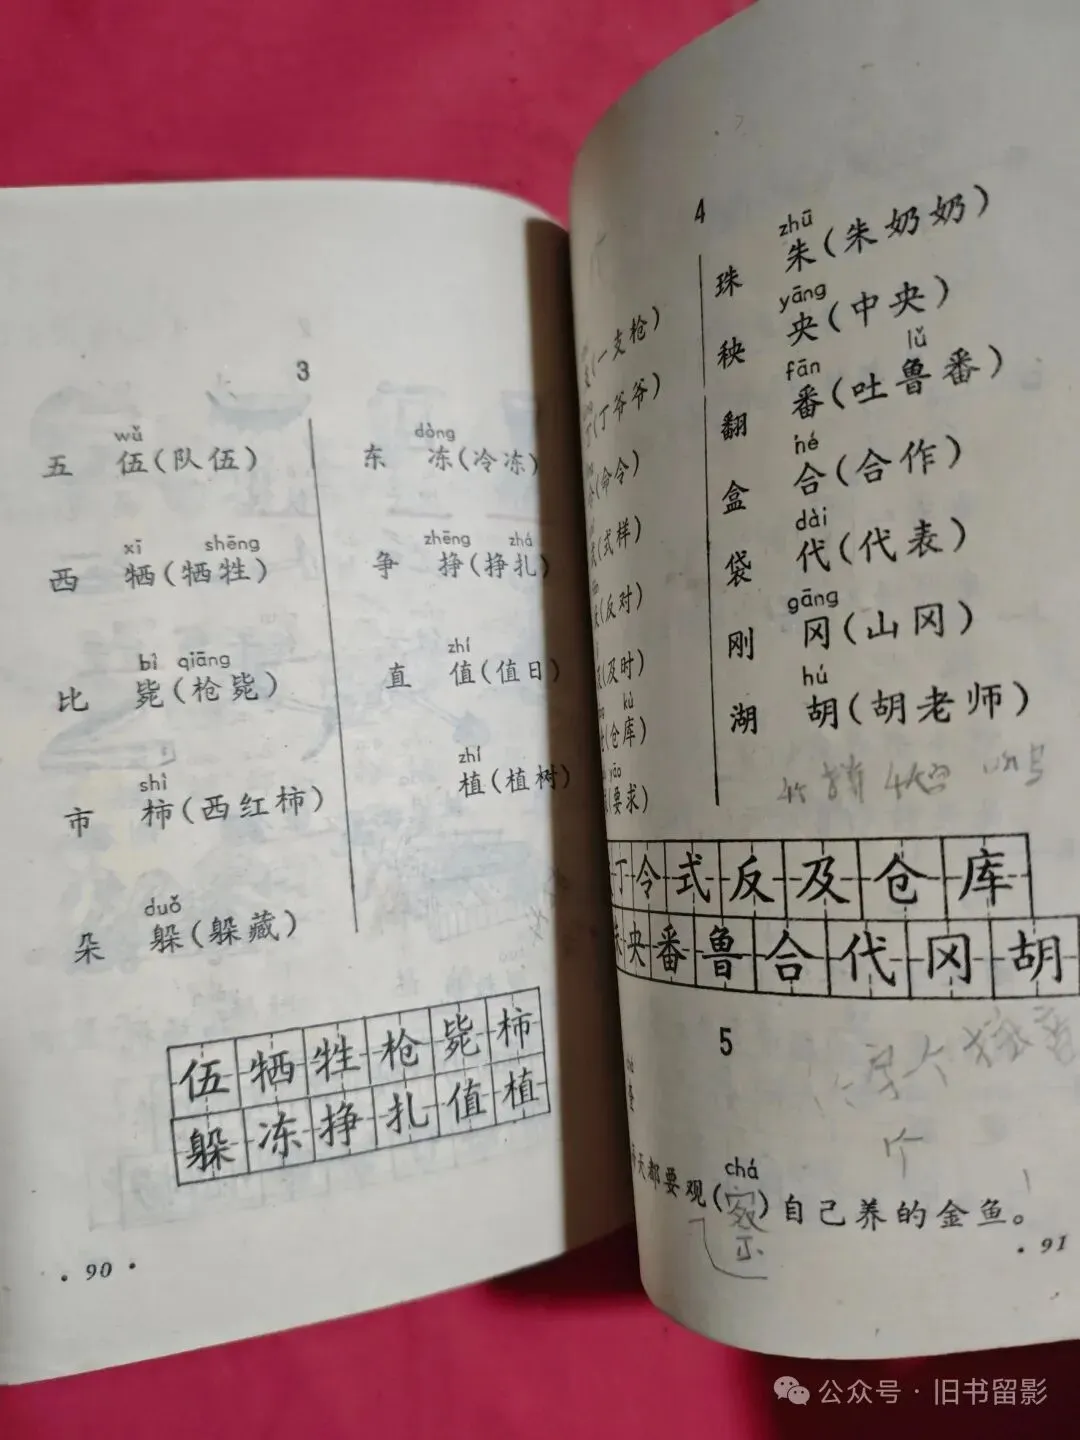 3
wǔ
五 伍(队伍)
xī shēng
西 牺(牺牲)
bì qiāng
比 毙(枪毙)
shì
市 柿(西红柿)
duǒ
朵 躲(躲藏)
dòng
东 冻(冷冻)
zhēng zhá
争 挣(挣扎)
zhí
直 值(值日)
zhí
植(植树)
伍牺牲枪毙柿
躲冻挣扎值植
· 90 ·
4
(一支枪)
(丁爷爷)
(命令)
(式样)
(反对)
(及时)
kù
(仓库)
yāo
(要求)
zhū
珠 朱(朱奶奶)
yāng
秧 央(中央)
fān lǔ
翻 番(吐鲁番)
hé
盒 合(合作)
dài
袋 代(代表)
gāng
刚 冈(山冈)
hú
湖 胡(胡老师)
丁令式反及仓库
朱央番鲁合代冈胡
5
chá
天都要观(察)自己养的金鱼。
· 91
公众号·旧书留影